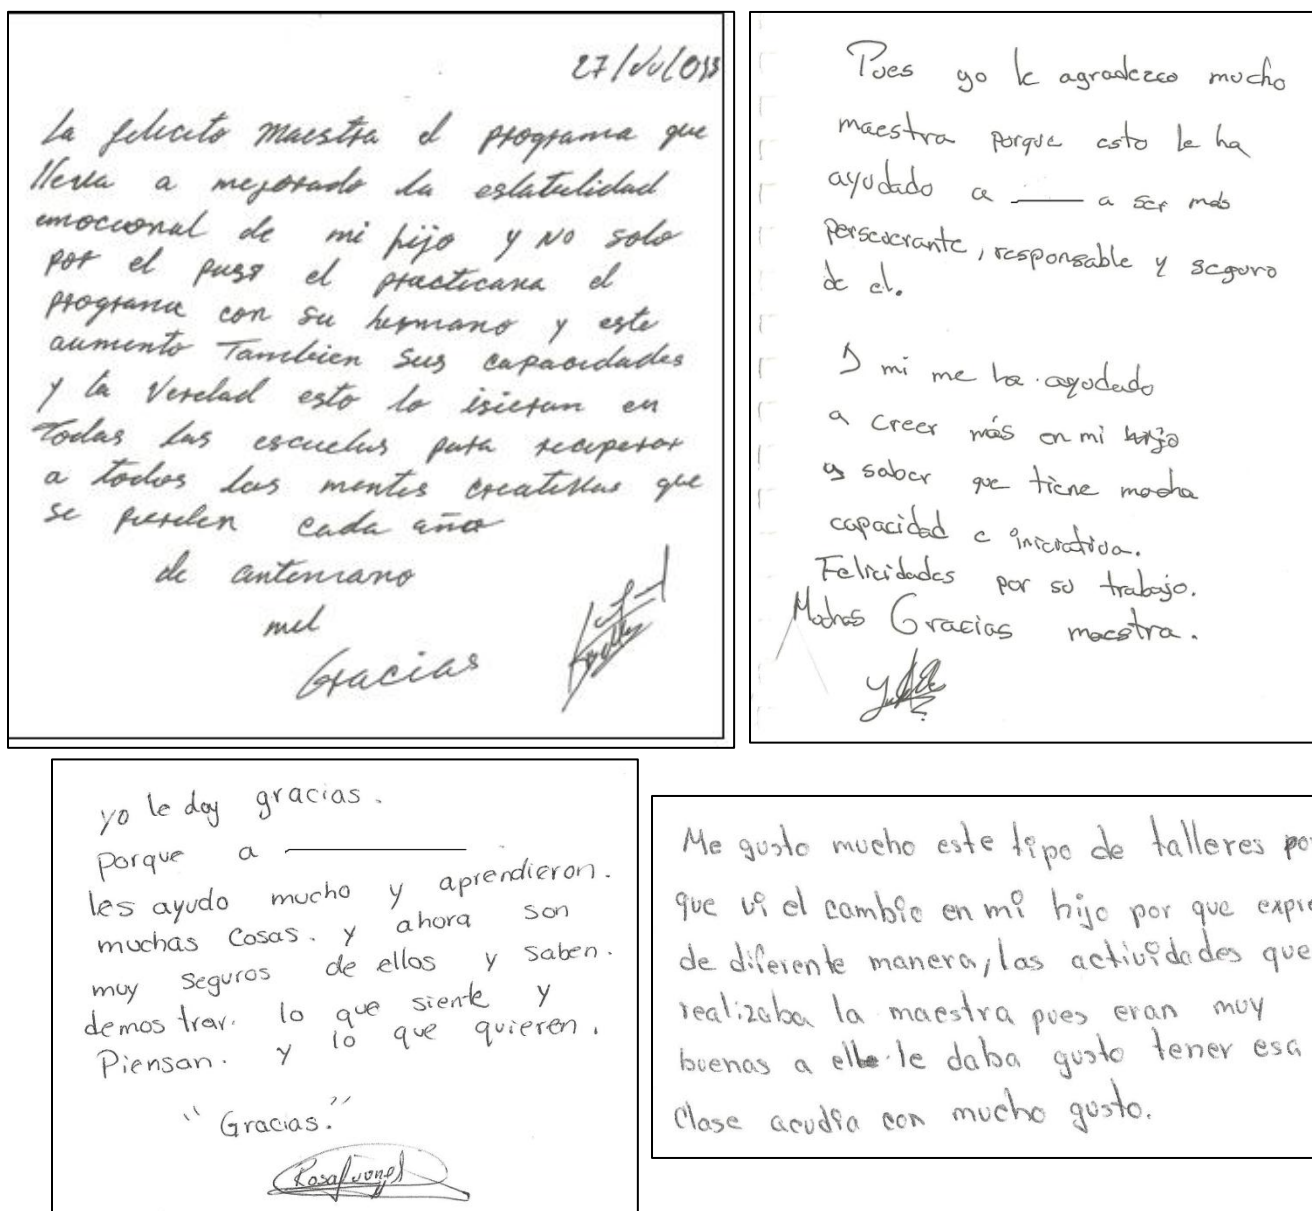 27/Jul/013
La felicito maestra el programa que
lleva a mejorado la estatulidad
emoccional de mi hijo y No solo
por el pues el practicana el
programa con su hermano y este
aumento Tambien sus capacidades
y la Verdad esto lo isieran en
Todas las escuelas para recuperar
a todos las mentes creativas que
se pierden cada año
de antemano
mil
Gracias
Pues yo le agradezco mucho
maestra porque esto le ha
ayudado a a ser más
perseverante, responsable y seguro
de el.
I mi me ha ayudado
a creer más en mi hijo
y saber que tiene mucha
capacidad e iniciativa.
Felicidades por su trabajo.
Muchas Gracias maestra.
yo le doy gracias.
Porque a
les ayudo mucho y aprendieron.
muchas cosas. y ahora son
muy seguros de ellos y saben.
demostrar. lo que siente y
Piensan. y lo que quieren.
"Gracias."
Me gusto mucho este tipo de talleres por
que vi el cambio en mi hijo por que expre
de diferente manera, las actividades que
realizaba la maestra pues eran muy
buenas a ella le daba gusto tener esa
Clase acudia con mucho gusto.